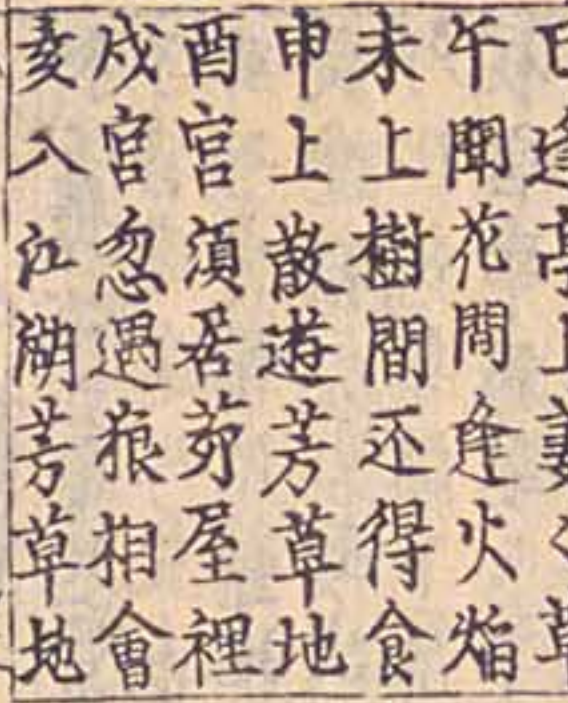 巳逢亭上萋〻草
午聞花間逢火焰
未上樹間还得食
申上散遊芳草地
酉宮須居茆屋裡
戌宮忽遇狼相會
亥入江湖芳草地